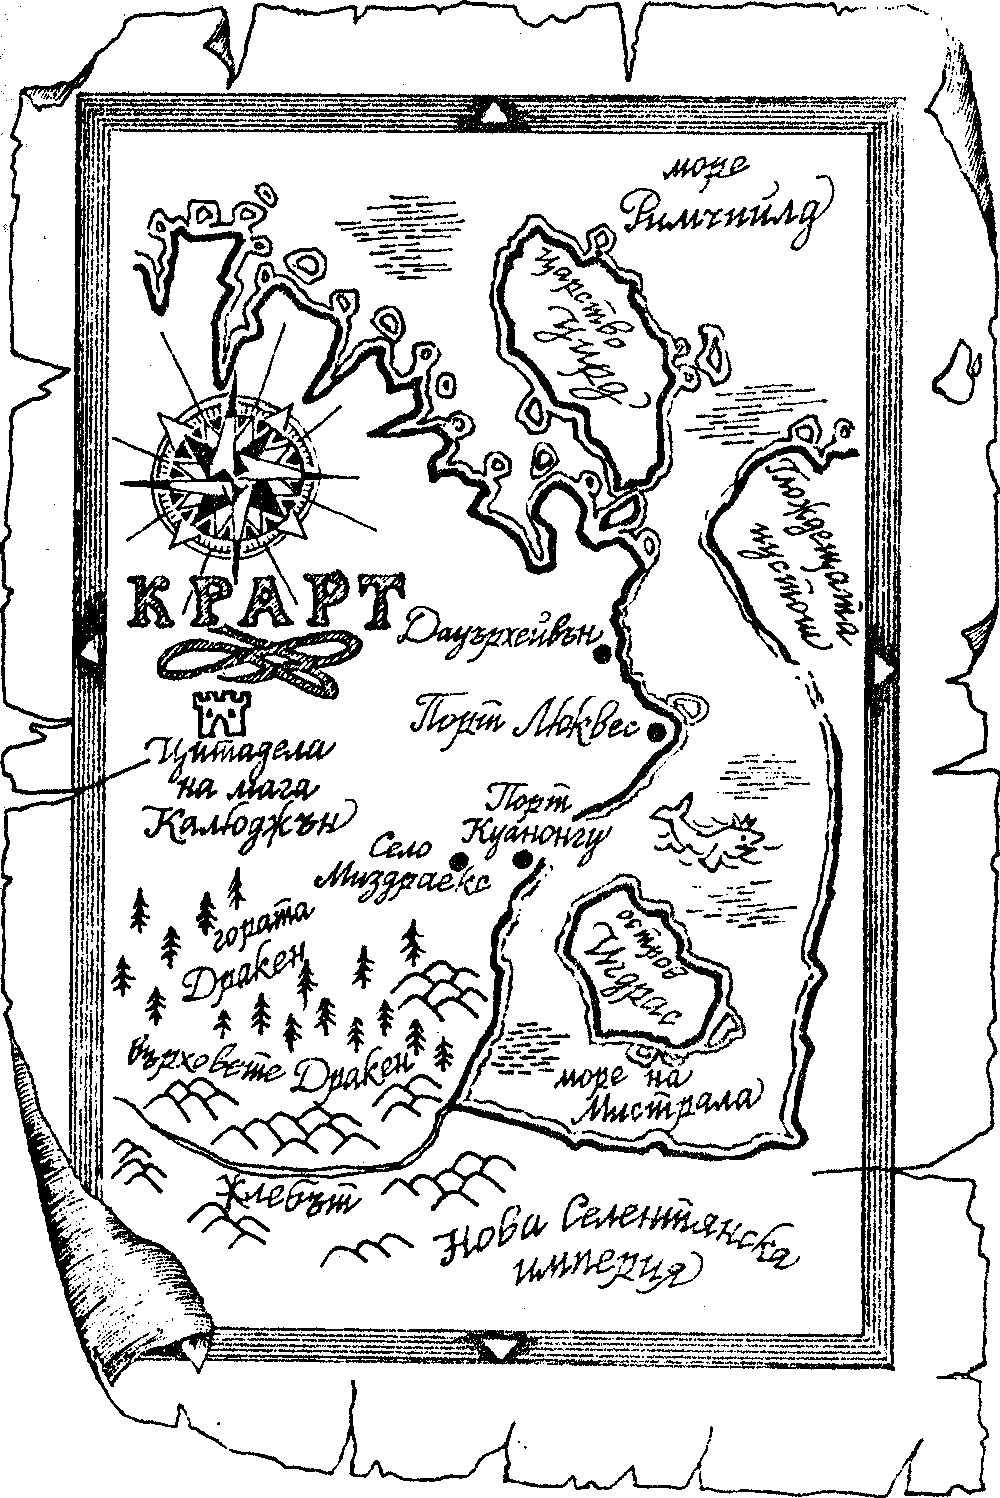 море
Римчийлд
царство
Уирд
Глождещата
пустош
КРАРТ
Дауърхейвън
Порт Люквес
Цитадела
на мага
Калюджън
Порт
Куанонгу
Село
Миздраекс
гората
Дракен
остров
върховете Дракен
море на
Мистрала
Хлебът
Нова Селентянска
империя